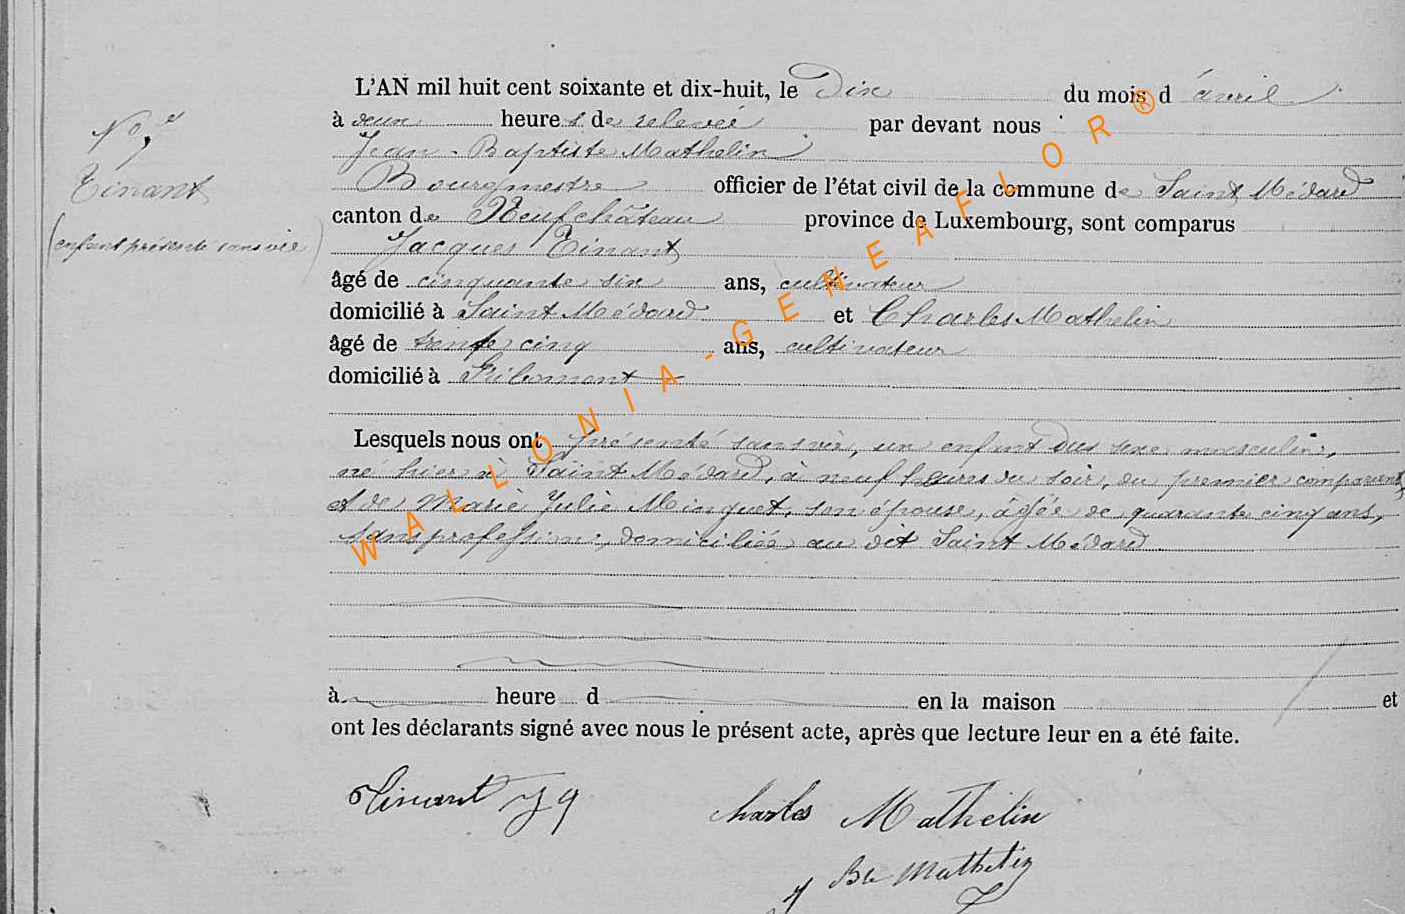 L'AN mil huit cent soixante et dix-huit, le Dix du mois d'avril
à deux heures de relevée par devant nous
Jean-Baptiste Mathelin
Bourgmestre officier de l'état civil de la commune de Saint Médard
canton de Neufchâteau province de Luxembourg, sont comparus
Jacques Tinant
âgé de cinquante six ans, cultivateur
domicilié à Saint Médard et Charles Mathelin
âgé de trente cinq ans, cultivateur
domicilié à
Lesquels nous ont présenté sans vie, un enfant du sexe masculin,
né hier à Saint Médard, à neuf heures du soir, du premier comparant
et de Marie Julie Minguet, son épouse, âgée de quarante cinq ans,
sans profession, domiciliée au dit Saint Médard.
à heure d en la maison et
ont les déclarants signé avec nous le présent acte, après que lecture leur en a été faite.
No 7
Tinant
(enfant présenté sans vie)
Tinant J Charles Mathelin
J Bte Mathelin
WALLONIA-GENEAFLOR®